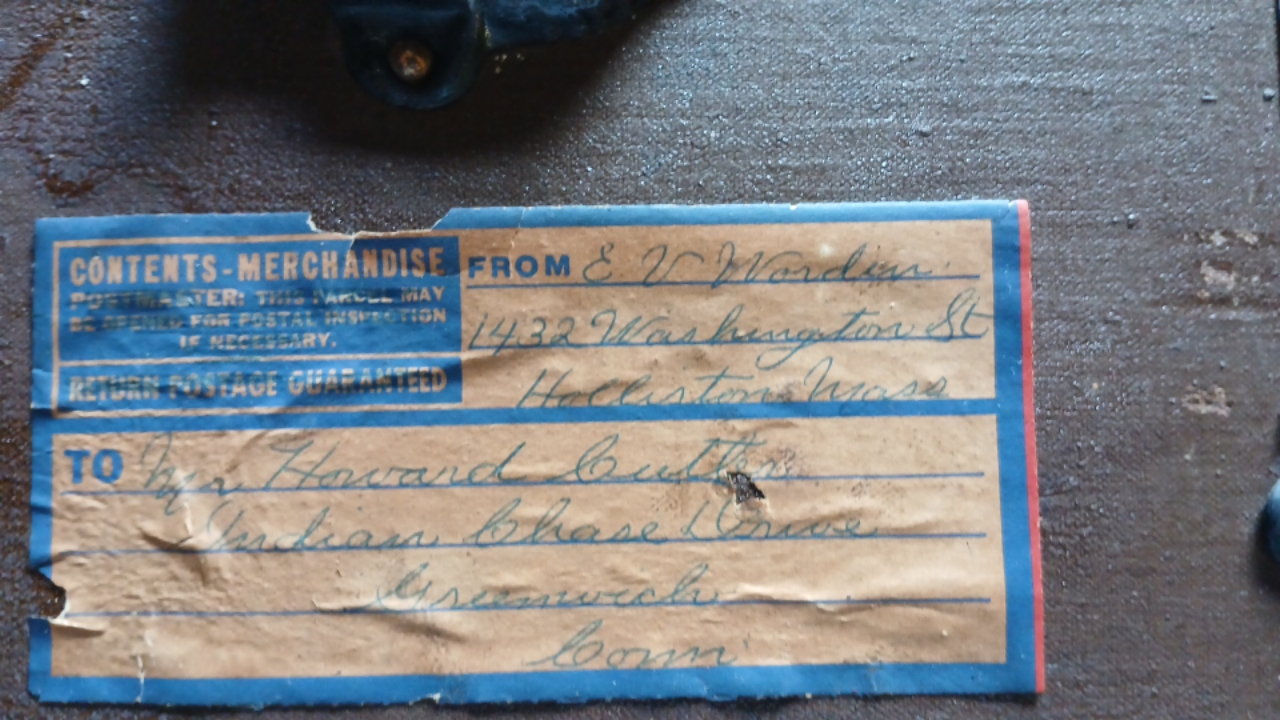 CONTENTS-MERCHANDISE
POSTMASTER: THIS PARCEL MAY
BE OPENED FOR POSTAL INSPECTION
IF NECESSARY.
RETURN POSTAGE GUARANTEED
FROM E V Wordin
1432 Washington St
Holliston Mass
TO Mr Howard Cutler
Indian Chase Drive
Greenwich
Conn